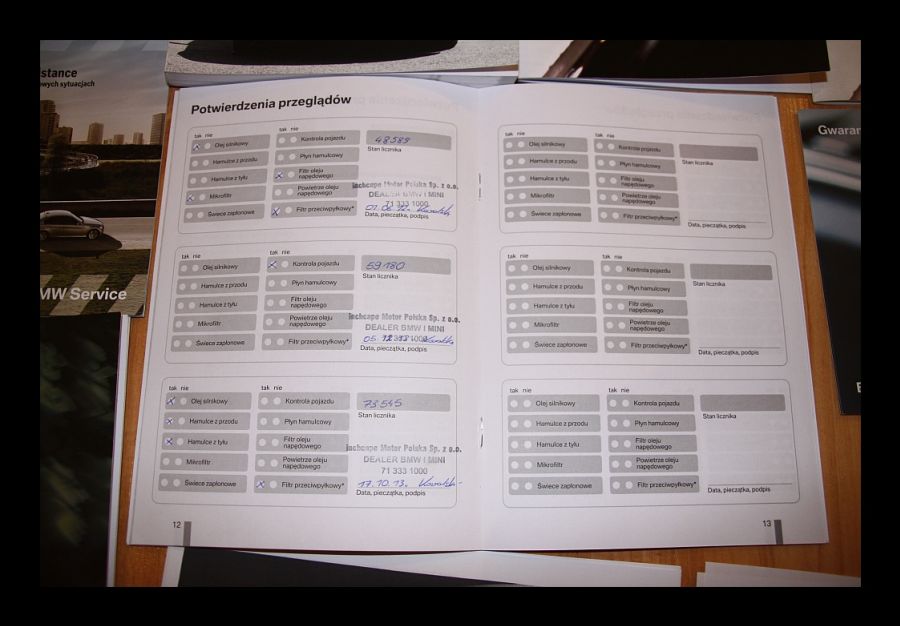 stance
owych sytuacjach
MW Service
Potwierdzenia przeglądów
tak nie
tak nie
Olej silnikowy
Kontrola pojazdu
48589
Stan licznika
Hamulce z przodu
Płyn hamulcowy
Hamulce z tyłu
Filtr oleju
napędowego
Mikrofiltr
Powietrze oleju
napędowego
Inchcape Motor Polska Sp. z o.o.
DEALER BMW I MINI
71 333 1000
Świece zapłonowe
Filtr przeciwpyłkowy*
Data, pieczątka, podpis
tak nie
tak nie
Olej silnikowy
Kontrola pojazdu
59180
Stan licznika
Hamulce z przodu
Płyn hamulcowy
Hamulce z tyłu
Filtr oleju
napędowego
Mikrofiltr
Powietrze oleju
napędowego
Inchcape Motor Polska Sp. z o.o.
DEALER BMW I MINI
Świece zapłonowe
Filtr przeciwpyłkowy*
Data, pieczątka, podpis
tak nie
tak nie
Olej silnikowy
Kontrola pojazdu
73545
Stan licznika
Hamulce z przodu
Płyn hamulcowy
Hamulce z tyłu
Filtr oleju
napędowego
Mikrofiltr
Powietrze oleju
napędowego
Inchcape Motor Polska Sp. z o.o.
DEALER BMW I MINI
71 333 1000
Świece zapłonowe
Filtr przeciwpyłkowy*
17.10.13.
Data, pieczątka, podpis
12
tak nie
tak nie
Olej silnikowy
Kontrola pojazdu
Stan licznika
Hamulce z przodu
Płyn hamulcowy
Hamulce z tyłu
Filtr oleju
napędowego
Mikrofiltr
Powietrze oleju
napędowego
Świece zapłonowe
Filtr przeciwpyłkowy*
Data, pieczątka, podpis
tak nie
tak nie
Olej silnikowy
Kontrola pojazdu
Stan licznika
Hamulce z przodu
Płyn hamulcowy
Hamulce z tyłu
Filtr oleju
napędowego
Mikrofiltr
Powietrze oleju
napędowego
Świece zapłonowe
Filtr przeciwpyłkowy*
Data, pieczątka, podpis
tak nie
tak nie
Olej silnikowy
Kontrola pojazdu
Stan licznika
Hamulce z przodu
Płyn hamulcowy
Hamulce z tyłu
Filtr oleju
napędowego
Mikrofiltr
Powietrze oleju
napędowego
Świece zapłonowe
Filtr przeciwpyłkowy*
Data, pieczątka, podpis
13
Gwaran